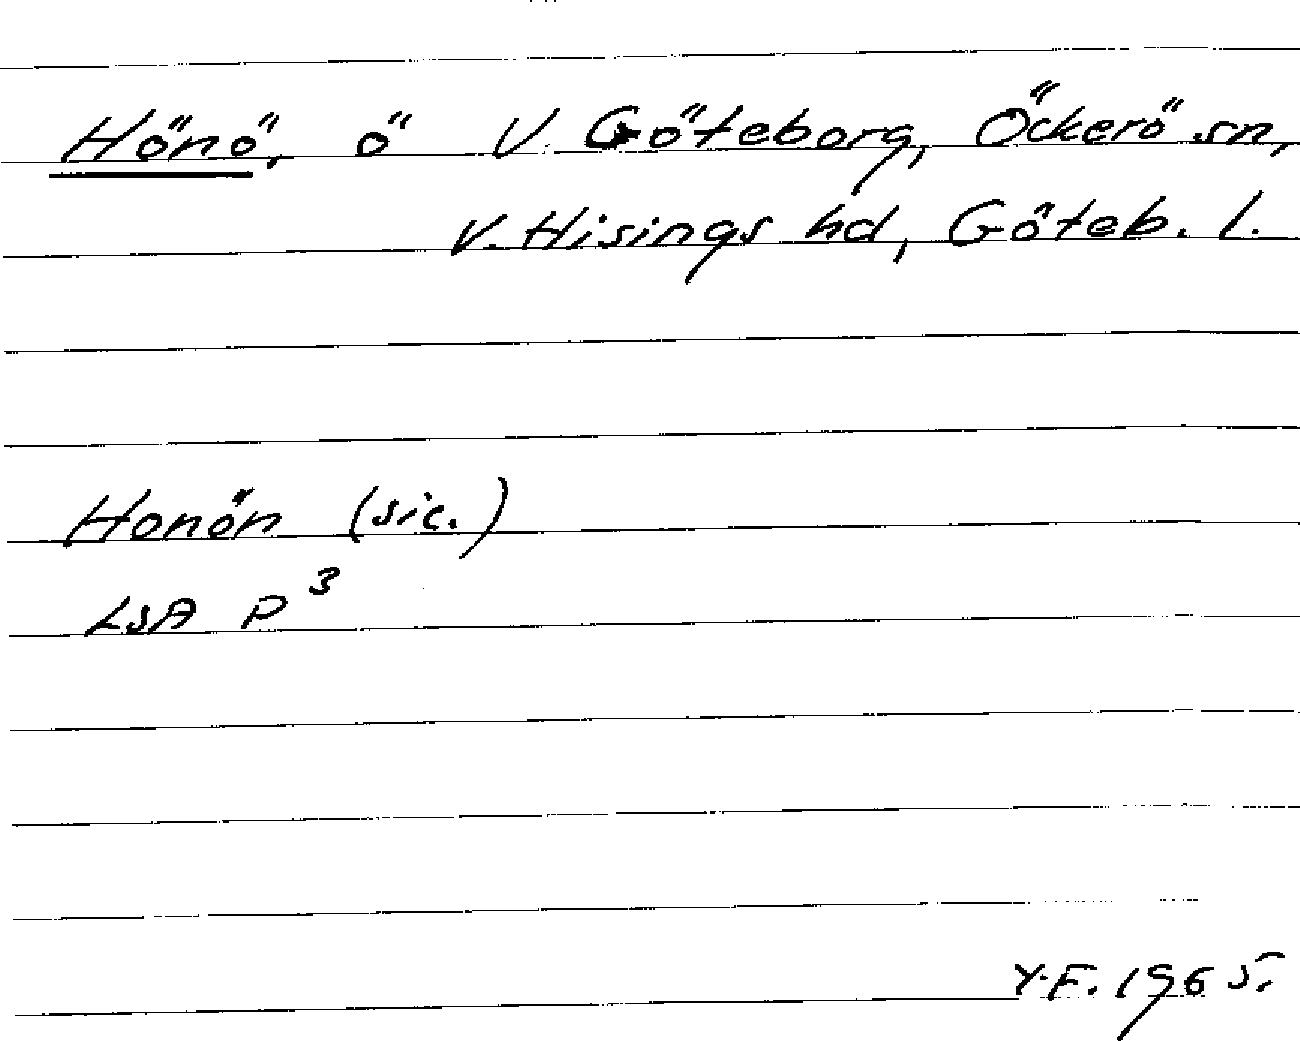 Hönö, ö V. Göteborg, Öckerö sn,
V. Hisings hd, Göteb. l.
Honön (sic.)
LSA P³
Y.F. 1965.